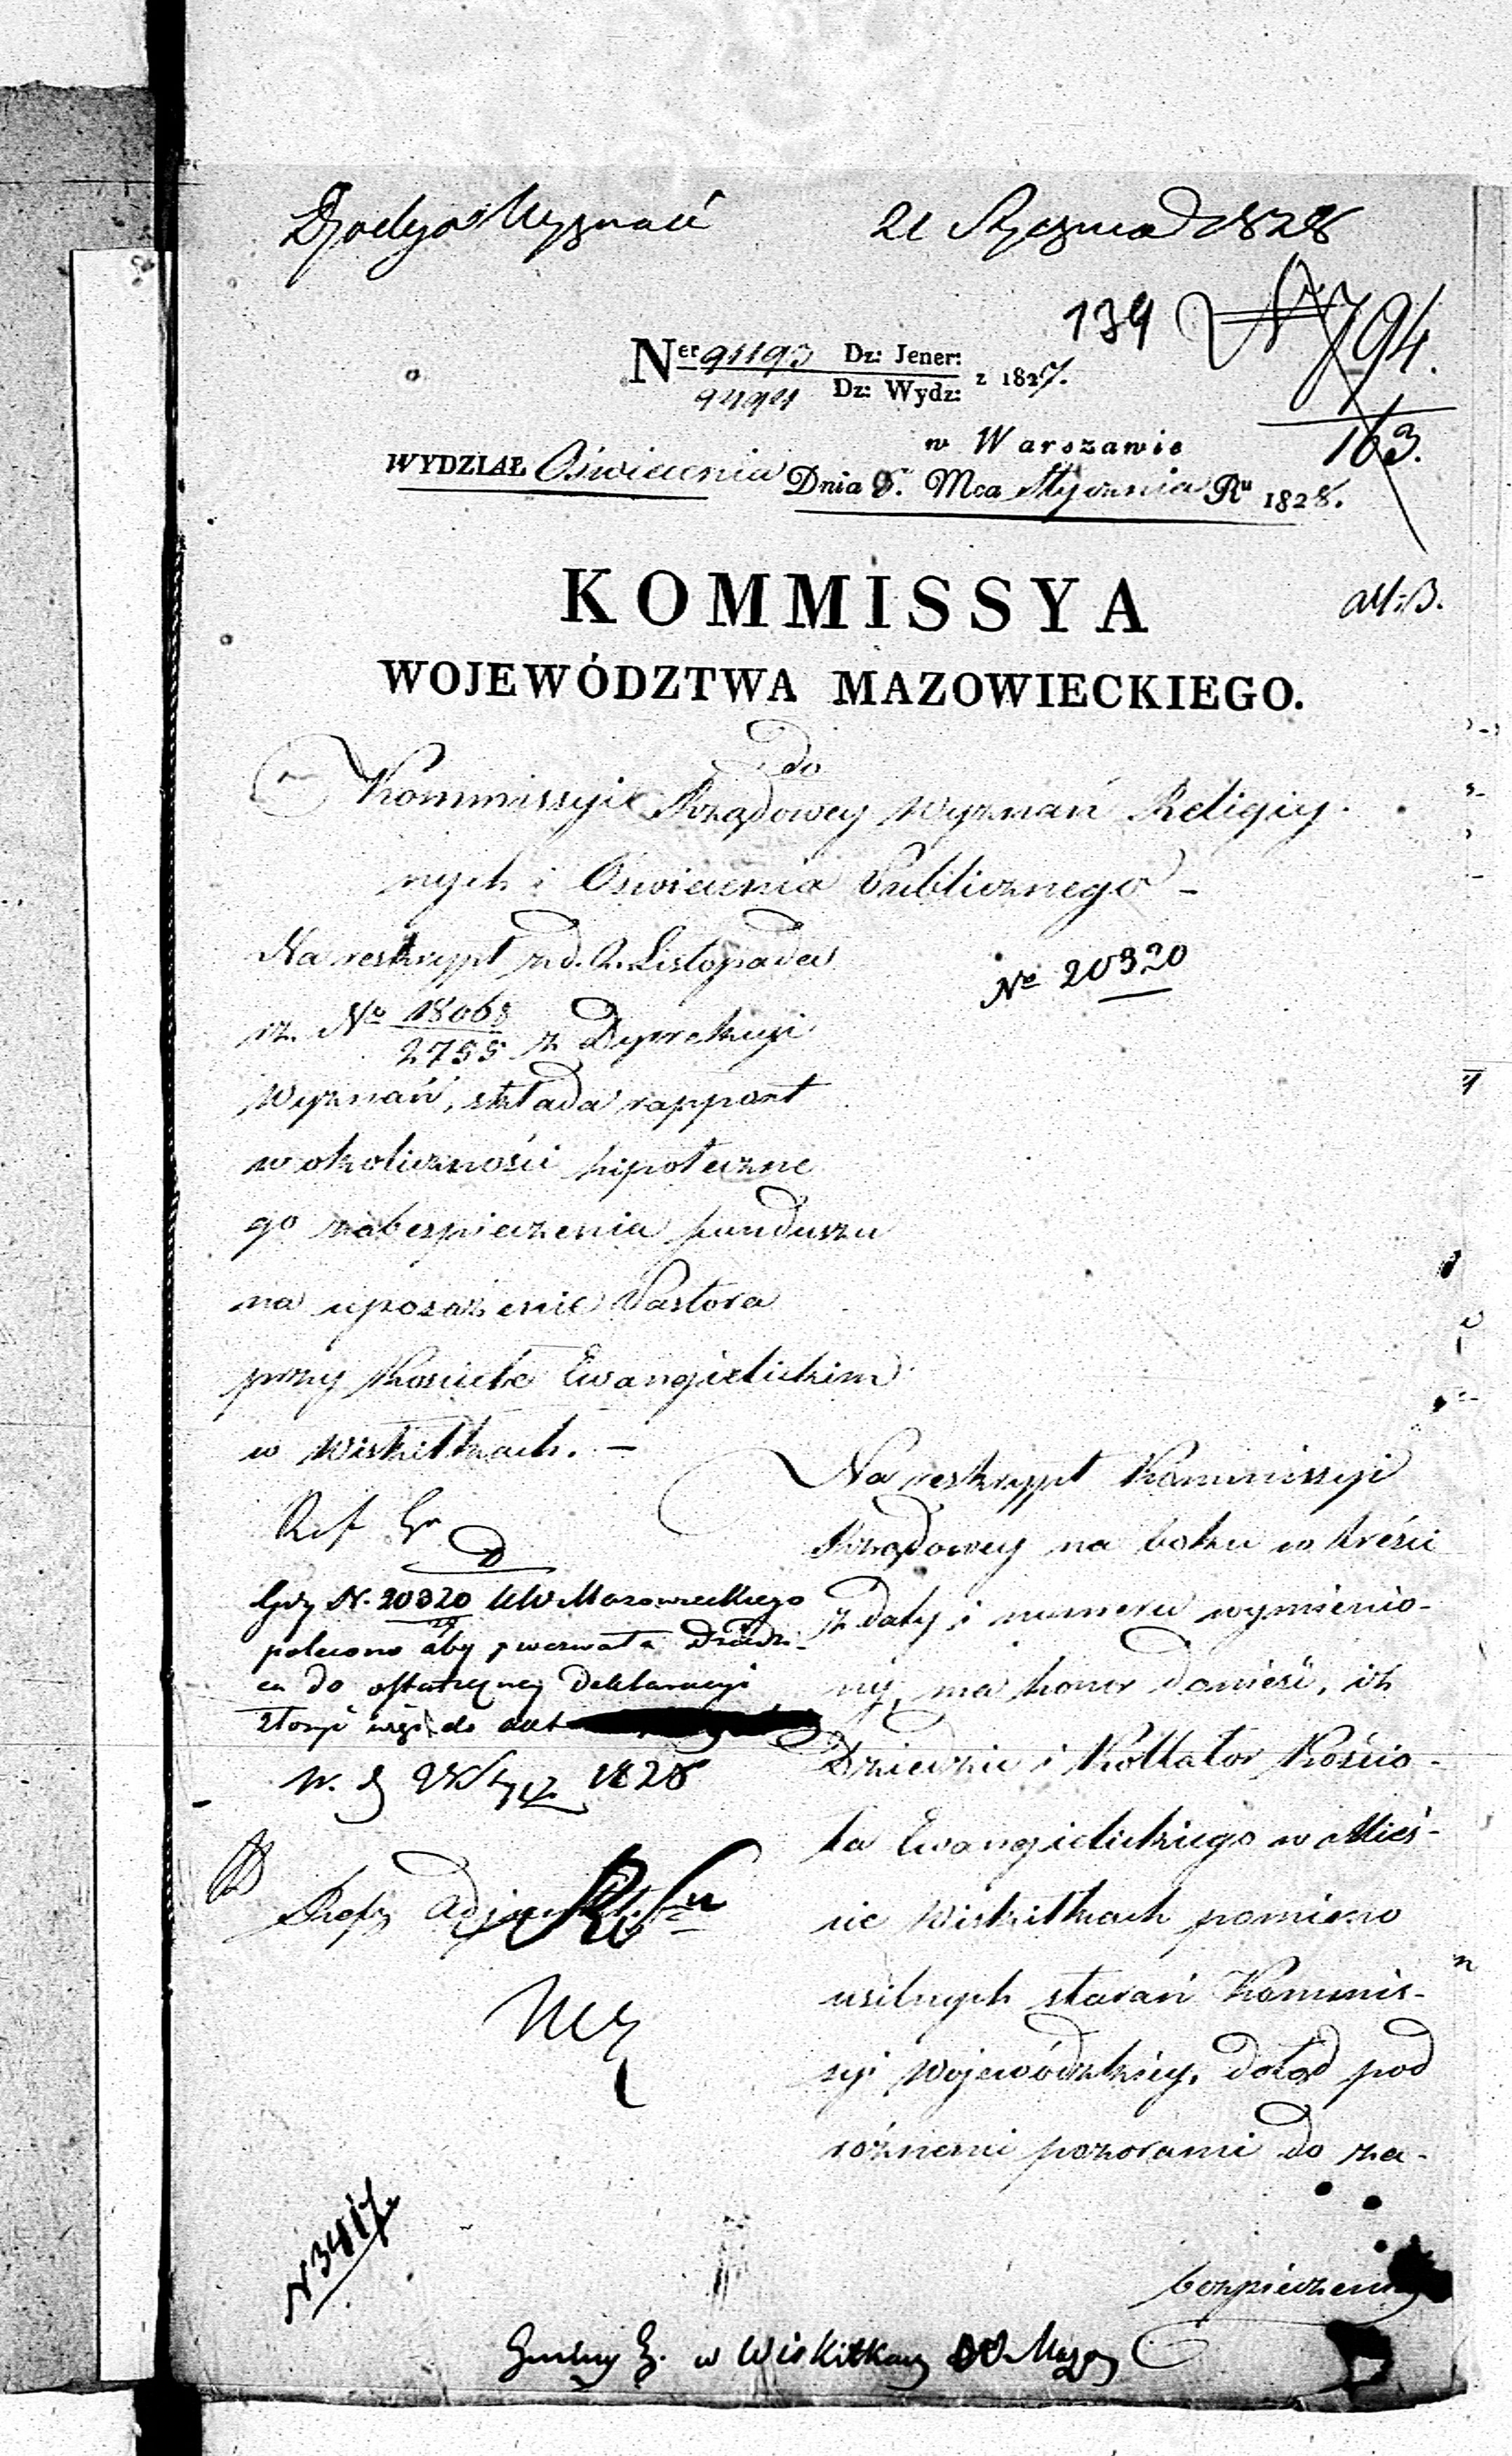 21 Stycznia 1828
139
N 794.
163.
Ner 91193 Dz: Jener:
9494 Dz: Wydz: z 1827.
w Warszawie
WYDZIAŁ Oświecenia Dnia 8. Mca Stycznia Ru 1828.
KOMMISSYA
WOJEWÓDZTWA MAZOWIECKIEGO.
do
Kommissyi Rządowey Wyznań Religiy-
nych i Oświecenia Publicznego -
Na reskrypt z d. 2. Listopada
No 20320
r.z. No 18068
2755 z Dyrekcyi
Wyznań, składa rapport
w okoliczności hipoteczne
go zabezpieczenia funduszu
na uposażenie Pastora
przy Kościele Ewangielickim
w Wiskitkach. -
Na reskrypt Kommissyi
Rządowey na boku w treści
z daty i numeru wymienio-
ny, ma honor donieść, iż
Dziedzic i Kollator Kościo-
ła Ewangielickiego w Mieś-
cie Wiskitkach pomimo
usilnych starań Kommis-
syi Wojewódzkiey, dotąd pod
różnemi pozorami do za-
bezpieczenia
Gdy N. 20320 KW Mazowieckiego
polecono aby wezwała Dziedzi-
ca do ostatecznej Deklaracyi
złożyć więc do akt
1828
N 3417
w Wiskitkach